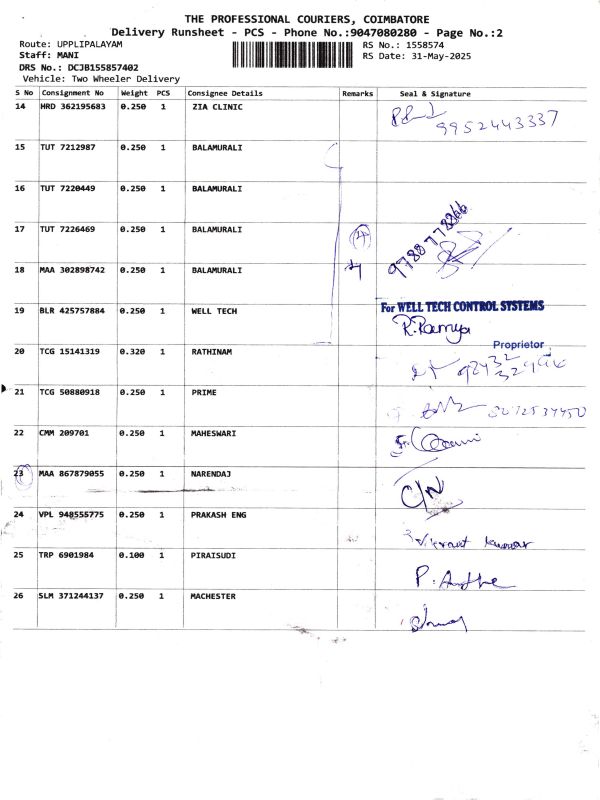 THE PROFESSIONAL COURIERS, COIMBATORE
Delivery Runsheet - PCS - Phone No.:9047080280 - Page No.:2
Route: UPPLIPALAYAM RS No.: 1558574
Staff: MANI RS Date: 31-May-2025
DRS No.: DCJB155857402
Vehicle: Two Wheeler Delivery
S No Consignment No Weight PCS Consignee Details Remarks Seal & Signature
14 HRD 362195683 0.250 1 ZIA CLINIC
9952443337
15 TUT 7212987 0.250 1 BALAMURALI
16 TUT 7220449 0.250 1 BALAMURALI
17 TUT 7226469 0.250 1 BALAMURALI
9788778866
18 MAA 302898742 0.250 1 BALAMURALI
19 BLR 425757884 0.250 1 WELL TECH For WELL TECH CONTROL SYSTEMS
R.Ramya
Proprietor
20 TCG 15141319 0.320 1 RATHINAM
21 TCG 50880918 0.250 1 PRIME
22 CMM 209701 0.250 1 MAHESWARI
23 MAA 867879055 0.250 1 NARENDAJ
C/N
24 VPL 948555775 0.250 1 PRAKASH ENG
25 TRP 6901984 0.100 1 PIRAISUDI
26 SLM 371244137 0.250 1 MACHESTER